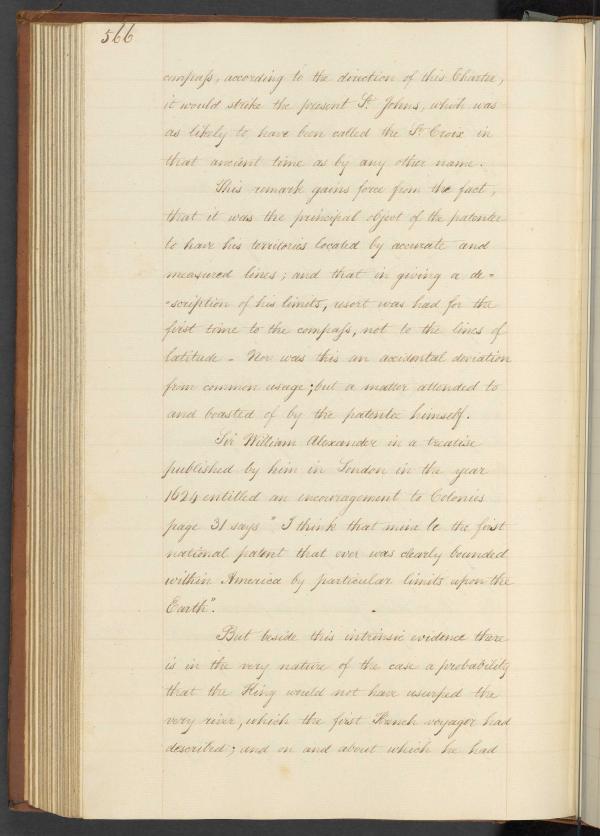 566
compaſs, according to the direction of this Charter,
it would strike the present St. Johns, which was
as likely to have been called the St Croix in
that ancient time as by any other name.
This remark gains force from the fact,
that it was the principal object of the patentee
to have his territories located by accurate and
measured lines; and that in giving a de=
=scription of his limits, resort was had for the
first time to the compaſs, not to the lines of
latitude - Nor was this an accidental deviation
from common usage; but a matter attended to
and boasted of by the patentee himself.
Sir William Alexander in a treatise
published by him in London in the year
1624 entitled an encouragement to Colonies
page 31 says "I think that mine be the first
national patent that ever was clearly bounded
within America by particular limits upon the
Earth".
But beside this intrinsic evidence there
is in the very nature of the case a probability
that the King would not have usurped the
very river, which the first French voyager had
described; and on and about which he had